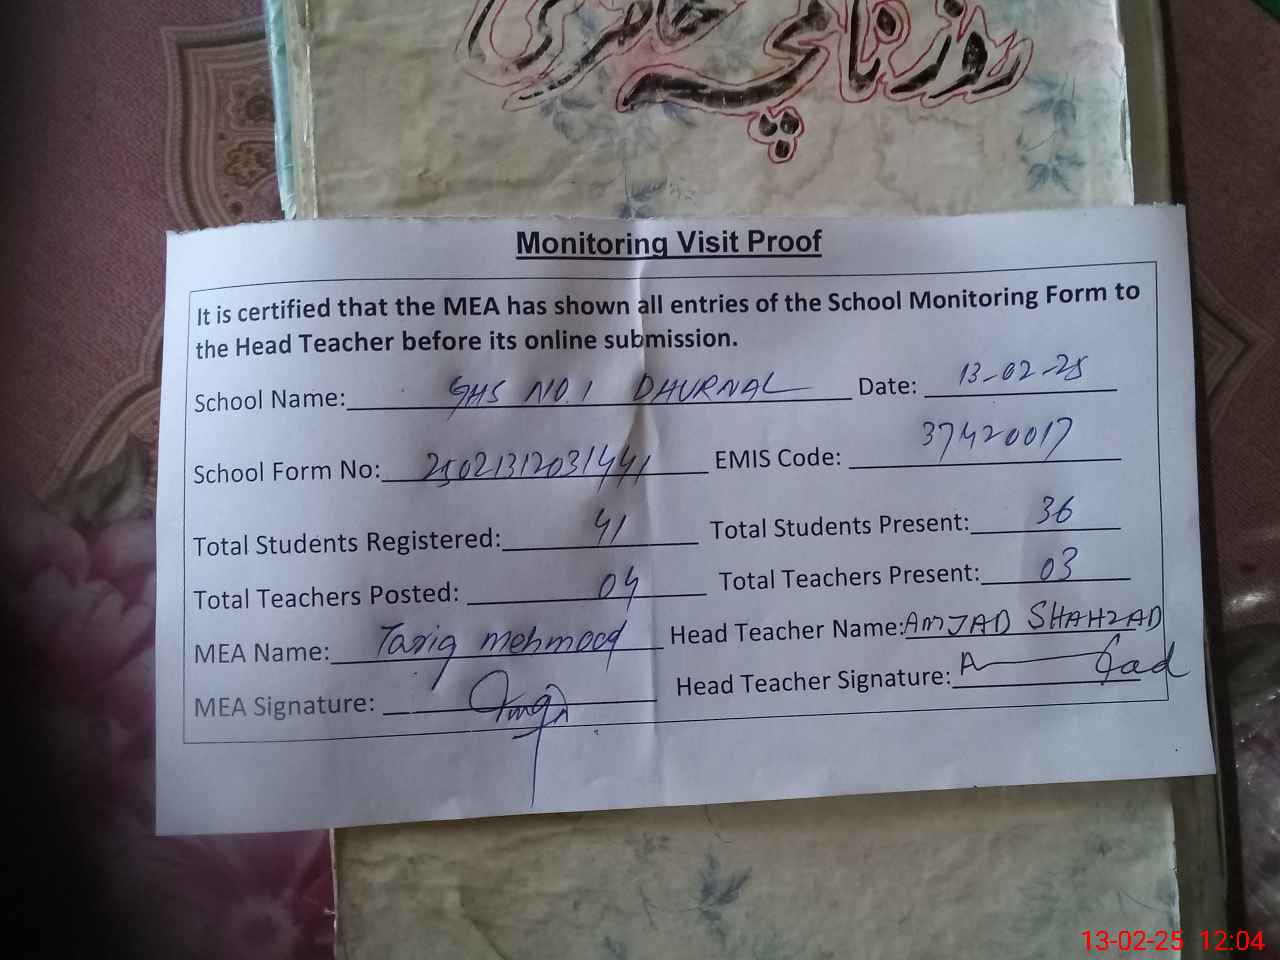 روزنامچہ حاضری
Monitoring Visit Proof
It is certified that the MEA has shown all entries of the School Monitoring Form to
the Head Teacher before its online submission.
School Name: GHS NO.1 DHURNAL Date: 13-02-25
School Form No: 25021312031441 EMIS Code: 37420017
Total Students Registered: 41 Total Students Present: 36
Total Teachers Posted: 04 Total Teachers Present: 03
MEA Name: Tariq mehmood Head Teacher Name: AMJAD SHAHZAD
MEA Signature: Head Teacher Signature:
13-02-25 12:04